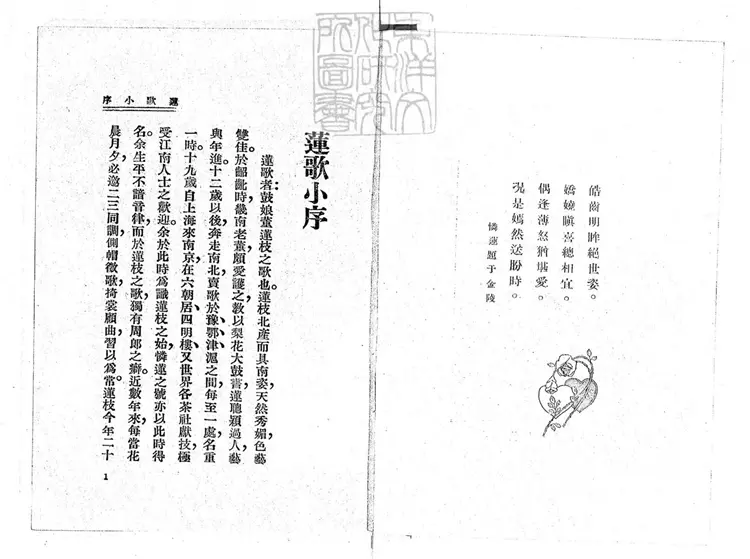 東洋文
化研究
所圖書
皓齒明眸絕世姿。
嬌嬈瞋喜總相宜。
偶逢薄怒猶堪愛。
況是嫣然送盼時。
憐蓮題于金陵
蓮歌小序
蓮歌者：鼓娘董蓮枝之歌也。蓮枝北產而具南姿，天然秀媚，色藝
雙佳。於齠齔時，畿南老董，頗愛護之，教以梨花大鼓書。蓮聰穎過人，藝
與年進。十二歲以後，奔走南北，賣歌於豫、鄂、津、滬之間，每至一處，名重
一時。十九歲自上海來南京，在六朝居、四明樓、又世界各茶社獻技，極
受江南人士之歡迎。余於此時為識蓮枝之始，憐蓮之號，亦以此時得
名。余生平不諳音律，而於蓮枝之歌，獨有周郎之癖。近數年來，每當花
晨月夕，必邀二三同調，側帽徵歌，掎裳顧曲，習以為常。蓮枝今年二十
蓮歌小序
1